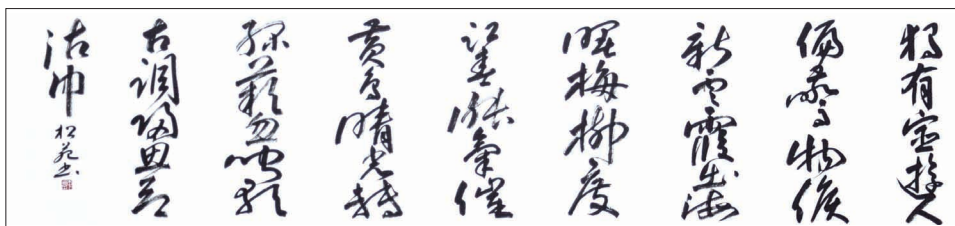 独有宦遊人
偏驚物候
新雲霞出海
曙梅柳度
江春淑氣催
黄鳥晴光轉
綠蘋忽聞歌
古調歸思欲
沾巾
松苑书